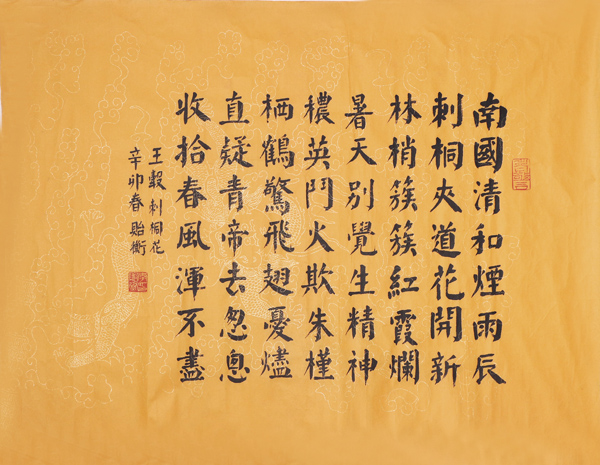 南國清和煙雨辰
刺桐夾道花開新
林梢簇簇紅霞爛
暑天別覺生精神
穠英鬥火欺朱槿
栖鶴驚飛翅憂燼
直疑青帝去怱悤
收拾春風渾不盡
王轂刺桐花
辛卯春貽衡